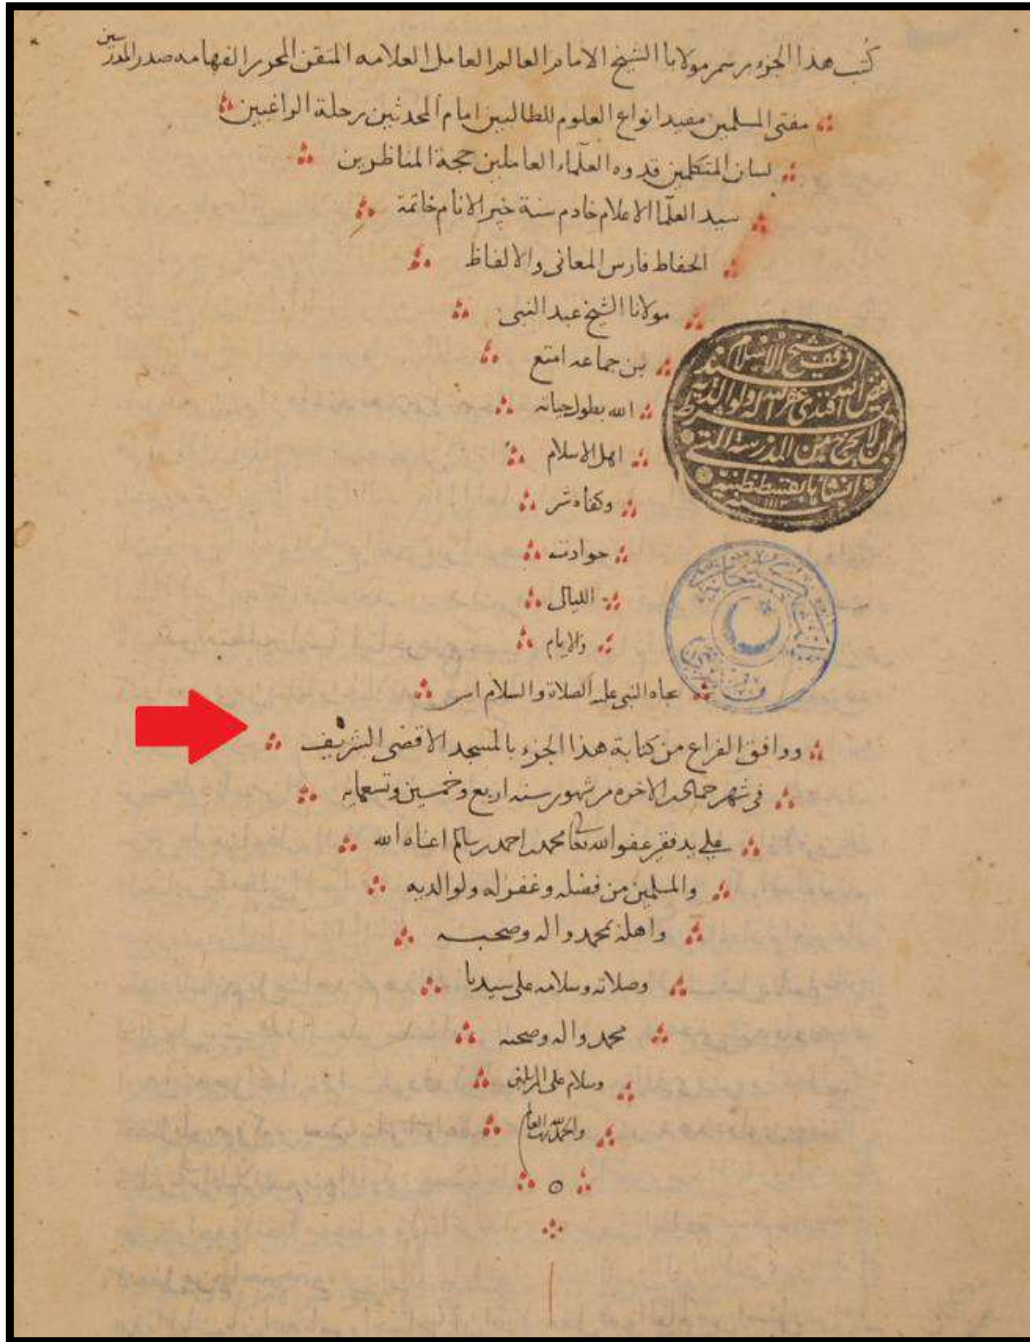 كتب هذا الجزء برسم مولانا الشيخ الامام العالم العامل العلامه المتقن المحرر الفهامه صدر المدرسين
مفتى المسلمين مفيد انواع العلوم للطالبين امام المحدثين رحلة الراغبين
لسان المتكلمين قدوه العلماء العاملين حجة المناظرين
سيد العلما الاعلام خادم سنة خير الانام خاتمة
الحفاظ فارس المعانى والالفاظ
مولانا الشيخ عبد النبى
بن جماعه امتع
الله بطول حياته
اهل الاسلام
وكفاه شر
حوادث
الليالى
والايام
بجاه النبى عليه الصلاة والسلام
ووافق الفراغ من كتابة هذا الجزء بالمسجد الاقصى الشريف
فى شهر جمادى الاخره من شهور سنه اربع وخمسين وتسعمايه
على يد فقير عفو الله تعالى محمد بن احمد بن سالم اغناه الله
والمسلمين من فضله وغفر له ولوالديه
واهله بمحمد واله وصحبه
وصلاته وسلامه على سيدنا
محمد واله وصحبه
وسلام على المرسلين
والحمد لله رب العالمين
وقف شيخ الاسلام السيد
فيض الله افندى غفر الله له ولوالديه
بشرط ان لا يخرج من المدرسة التى
انشأها بقسطنطينية
١١١٣